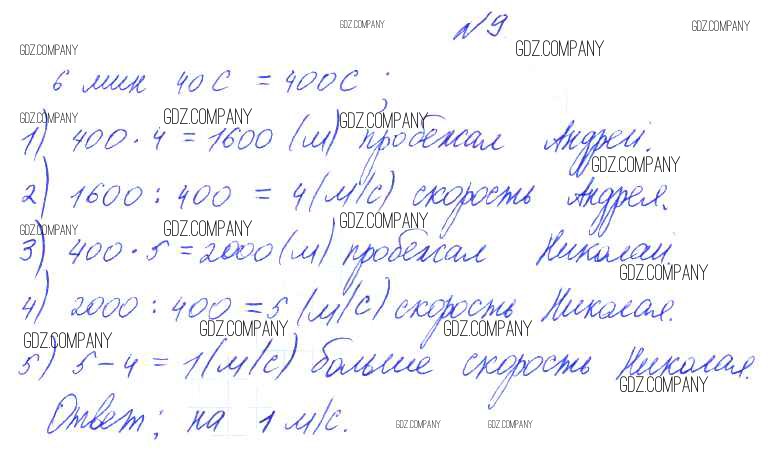 GDZ.COMPANY №9 GDZ.COMPANY
GDZ.COMPANY GDZ.COMPANY
6 мин 40 с = 400 с ;
GDZ.COMPANY GDZ.COMPANY GDZ.COMPANY
1) 400 · 4 = 1600 (м) пробежал Андрей.
GDZ.COMPANY
2) 1600 : 400 = 4 (м/с) скорость Андрея.
GDZ.COMPANY GDZ.COMPANY GDZ.COMPANY
3) 400 · 5 = 2000 (м) пробежал Николай
GDZ.COMPANY
4) 2000 : 400 = 5 (м/с) скорость Николая.
GDZ.COMPANY GDZ.COMPANY GDZ.COMPANY
5) 5 – 4 = 1 (м/с) больше скорость Николая.
GDZ.COMPANY
Ответ; на 1 м/с.
GDZ.COMPANY GDZ.COMPANY